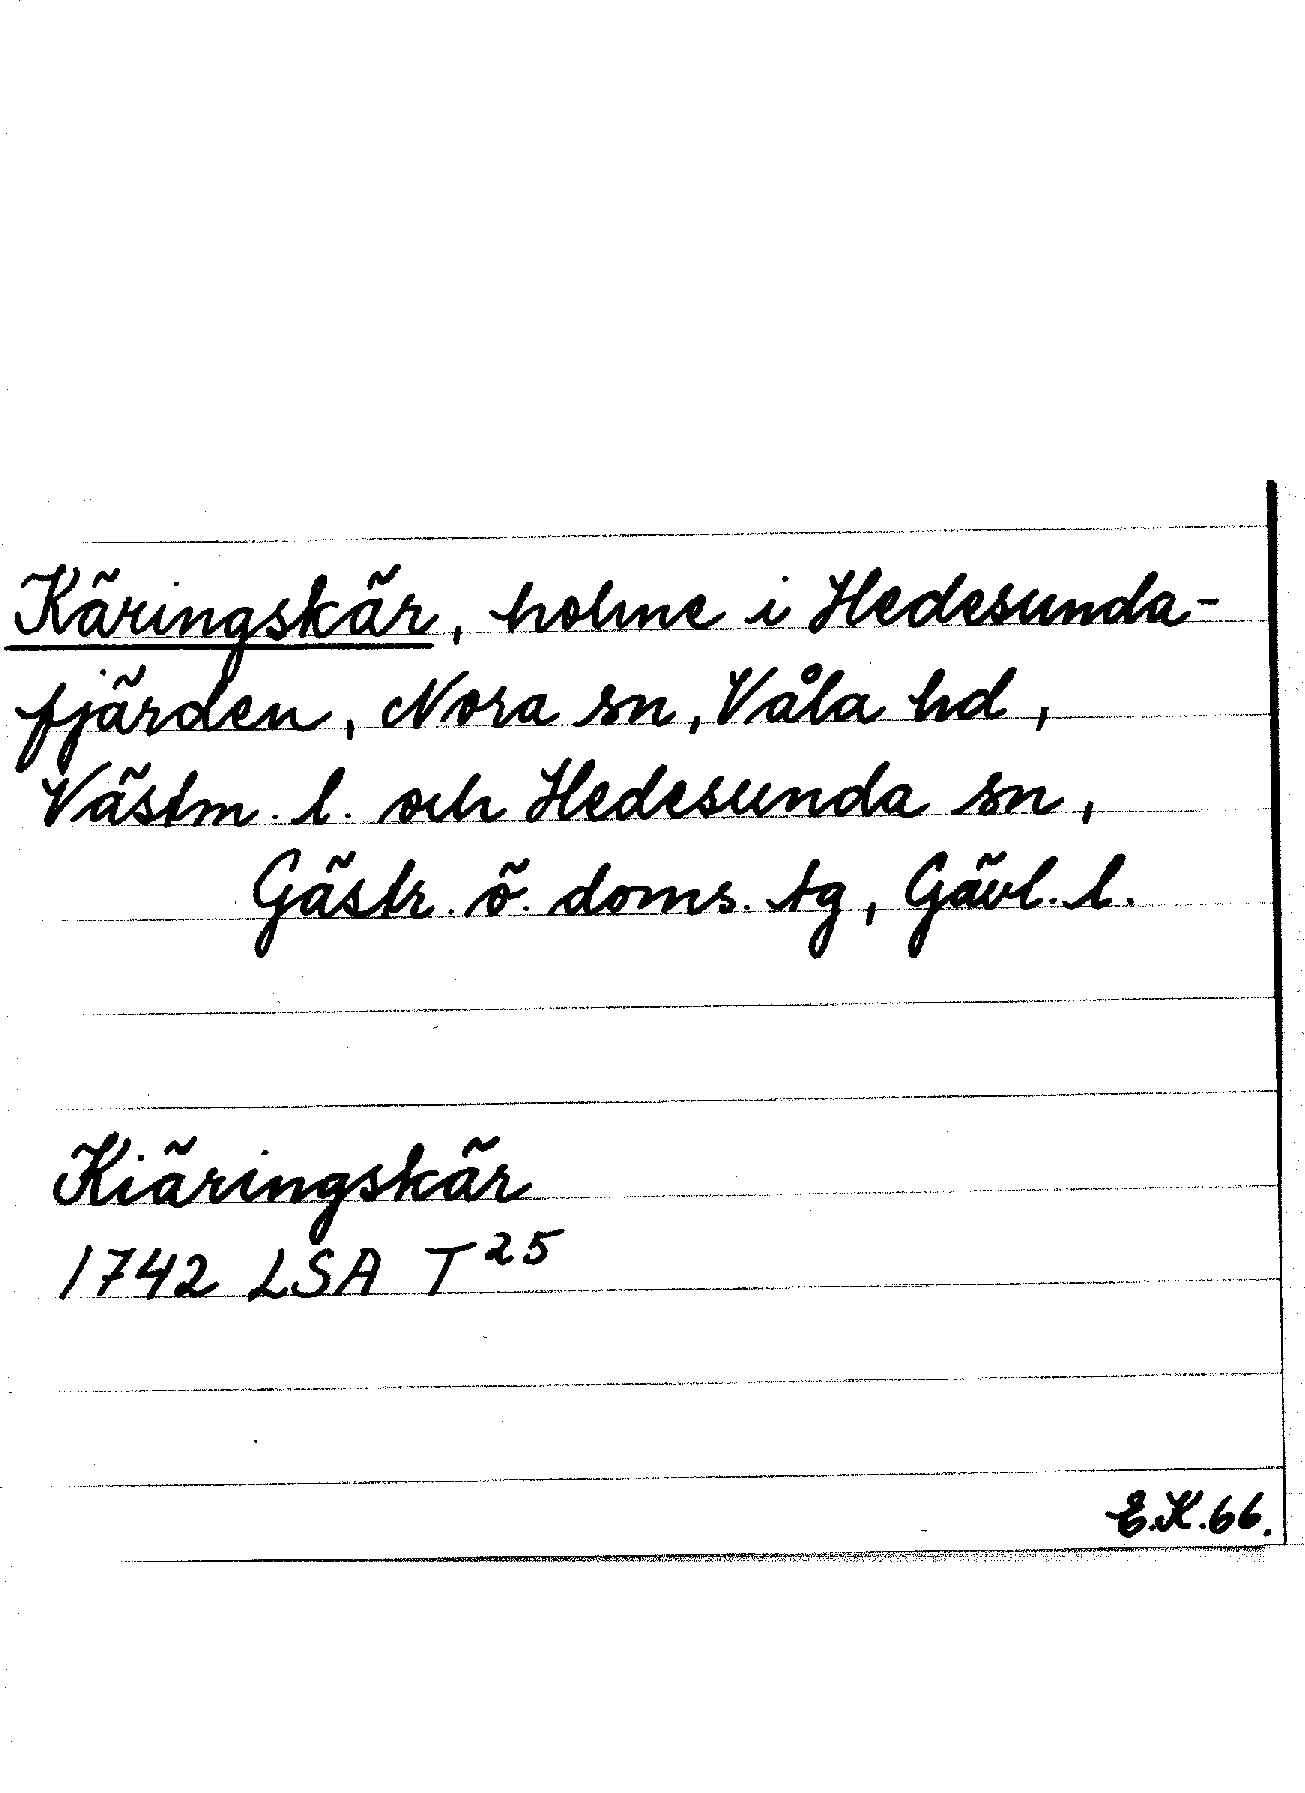 Käringskär, holme i Hedesunda-
fjärden, Nora sn, Våla hd,
Västm. l. och Hedesunda sn,
Gästr. ö. doms. tg, Gävl. l.
Kiäringskär
1742 LSA T 25
E.K.66.